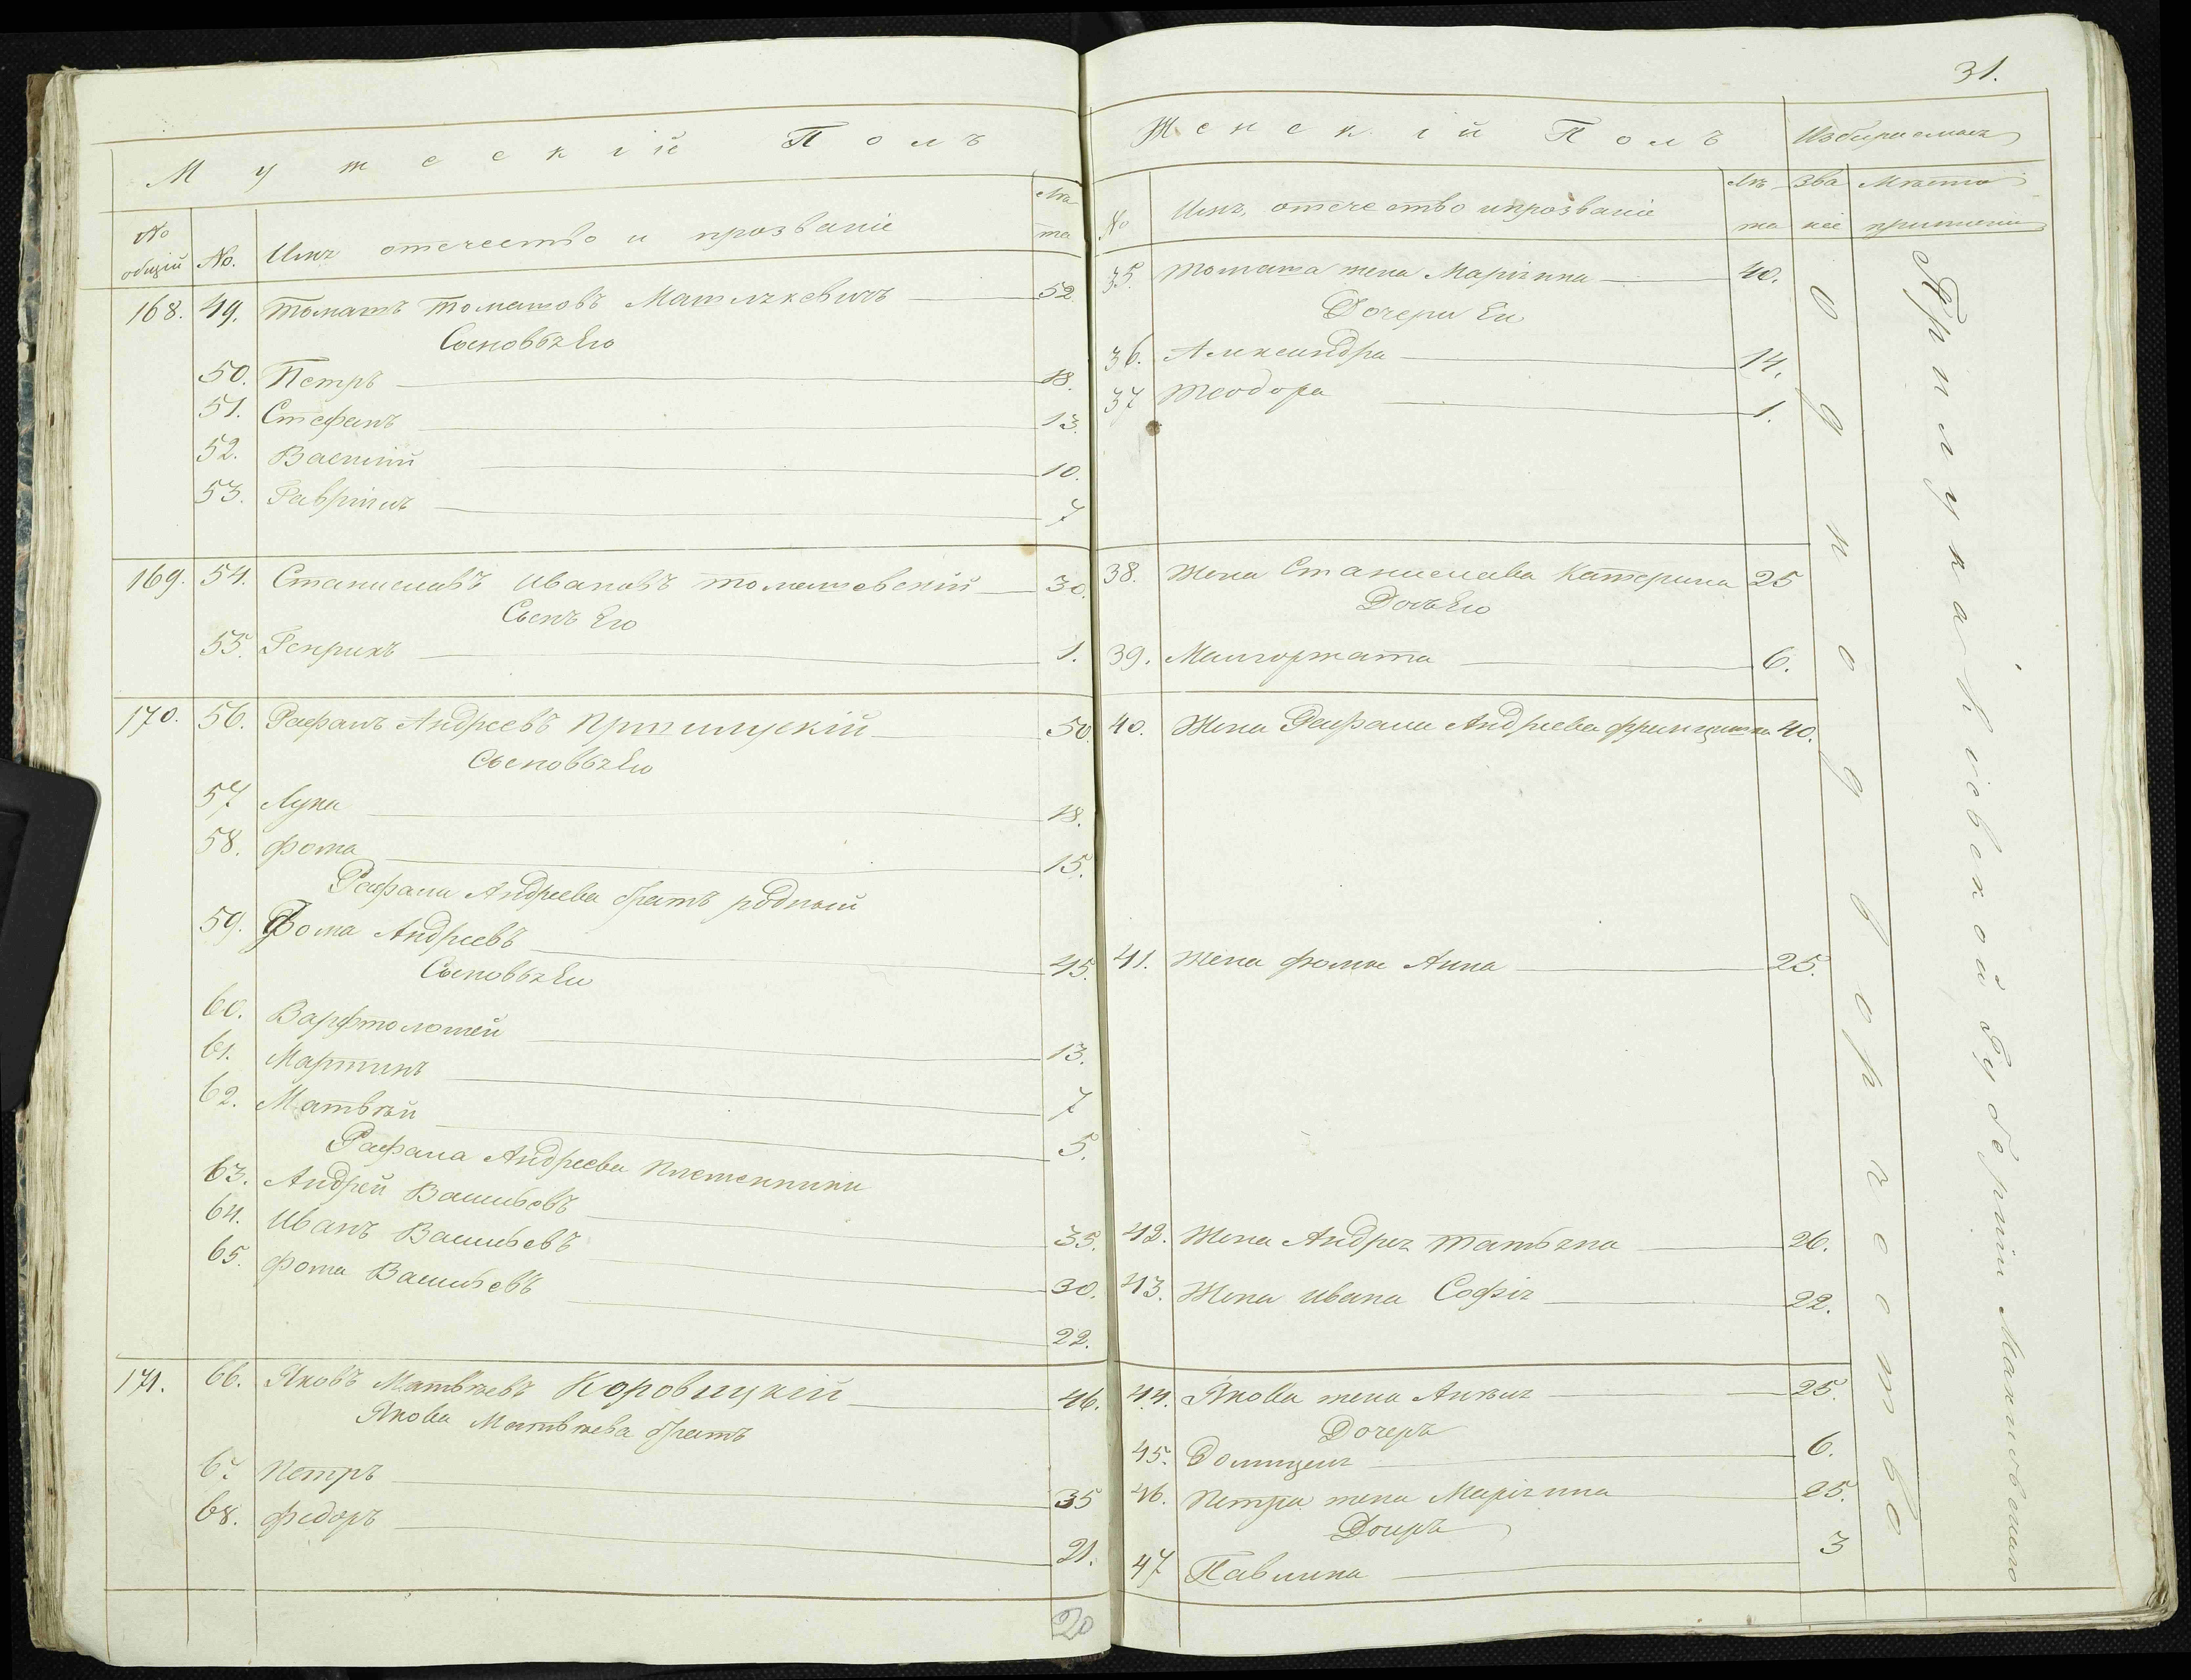 31.
Мужескій Полъ
№ общій
№.
Имя отечество и прозваніе
Лѣта
168. 49. Томашъ Томашовъ Матычкевичъ 52.
Сыновья Его
50. Петръ 18.
51. Стефанъ 13.
52. Василій 10.
53. Гавріилъ 7
169. 54. Станиславъ Ивановъ Томашевскій 30.
Сынъ Его
55. Генрихъ 1.
170. 56. Рафалъ Андреевъ 50.
Сыновья Его
57 Лука 18.
58. Фома 15.
Рафала Андреева братъ родный
59. Фома Андреевъ 45.
Сыновья Ею
60. Варфтоломей 13.
61. Мартинъ 7
62. Матвѣй 5.
Рафала Андреева племенники
63. Андрей Васильевъ 35.
64. Иванъ Васильевъ 30.
65. Фома Васильевъ 22.
171. 66. Яковъ Матвѣевъ Коровицкій 46.
Якова Матвѣева братъ
67. Петръ 35
68. Федоръ 21.
20
Женскій Полъ
Избираемыя
№
Имя, отечество и прозваніе
Лѣта
Званіе
Мѣсто
35. Томаша жена Маріянна 40.
Дочери Ея
36. Александра 14.
37 Теодора 1.
38. Жена Станислава Катерина 25
Дочь Его
39. Малгоржата 6.
40. Жена Рафала Андреева Францишка 40.
41. Жена Фомы Анна 25.
42. Жена Андрея Татьяна 26.
43. Жена Ивана Софія 22.
44. Якова жена Анеля 25.
Дочерь
45. Домицеля 6.
46. Петра жена Маріянна 25.
Дочерь
47 Павлина 3
однодворчество
Прилука Кіевской Губерніи Махновского